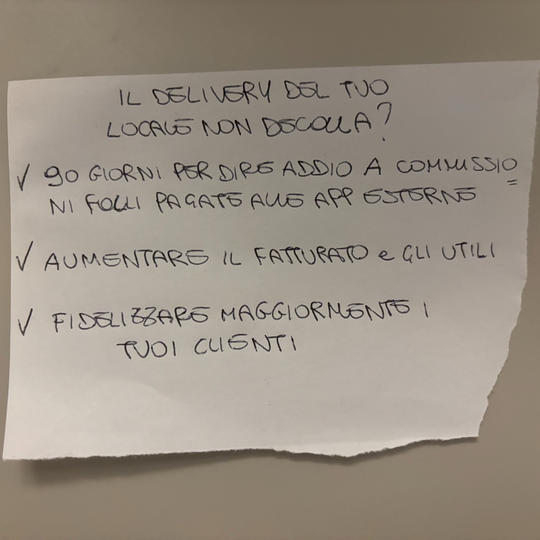 IL DELIVERY DEL TUO
LOCALE NON DECOLLA?
✓ 90 GIORNI PER DIRE ADDIO A COMMISSIO=
NI FOLLI PAGATE ALLE APP ESTERNE
✓ AUMENTARE IL FATTURATO e GLI UTILI
✓ FIDELIZZARE MAGGIORMENTE I
TUOI CLIENTI